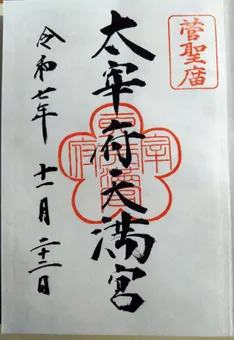 菅聖庿
太宰府天満宮
令和七年 十一月 二十二日